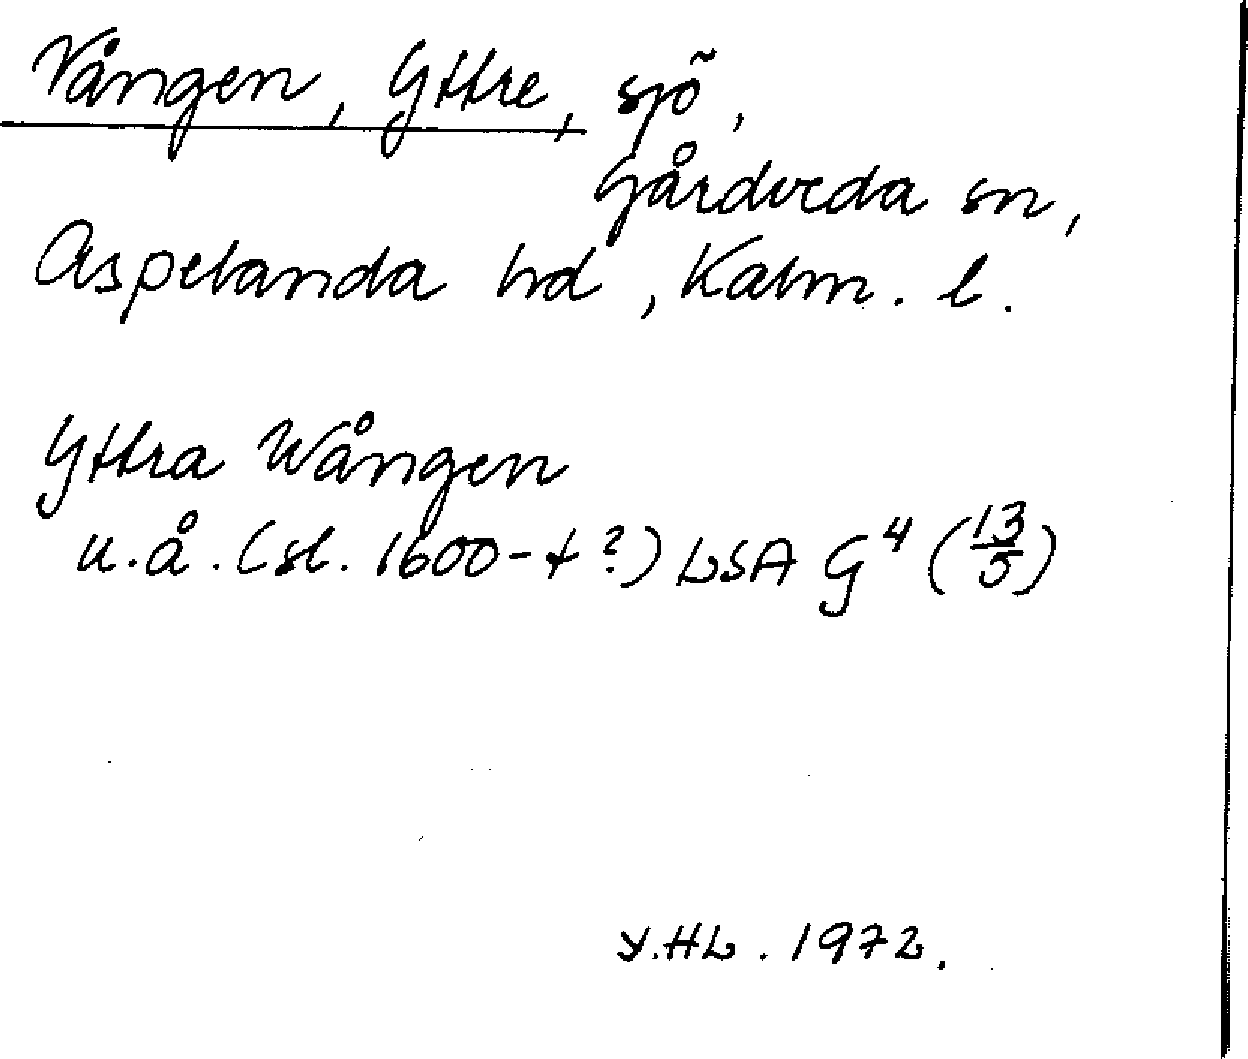 Vången, Yttre, sjö,
Gårdveda sn,
Aspelanda hd, Kalm. l.
Yttra Wången
u.å. (sl. 1600-t?) LSA G⁴ (13/5)
Y.HL. 1972.